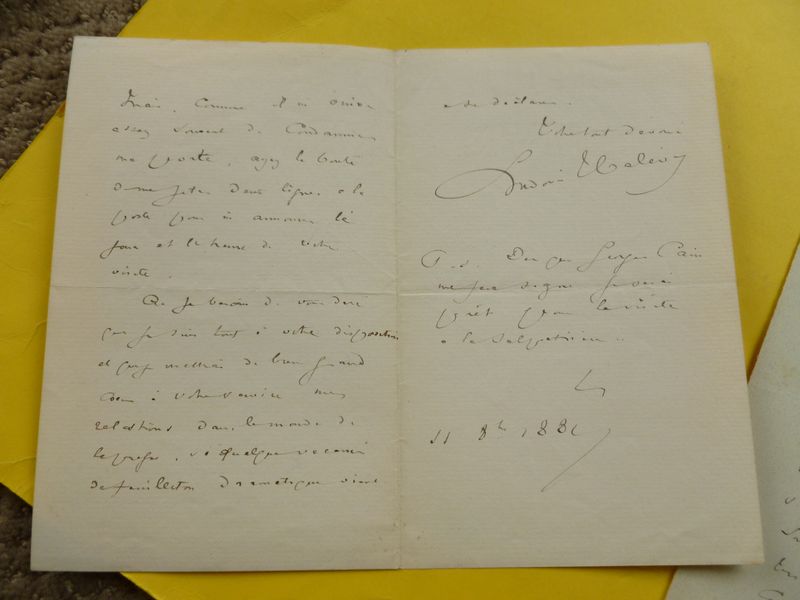 Mais, comme il m'arrive
assez souvent de condamner
ma porte, ayez la bonté
de me jeter deux lignes à la
poste pour m'annoncer le
jour et l'heure de votre
visite.
Ai-je besoin de vous dire
que je suis tout à votre disposition
et que je mettrai de bien grand
cœur à votre service mes
relations dans le monde de
la presse, si quelque vacance
de feuilleton dramatique vient
à se déclarer.
Votre tout dévoué
Ludovic Halévy
P. S. Dès que Georges
me fera signe je serai
prêt pour la visite
à la Salpêtrière.
11 8bre 188